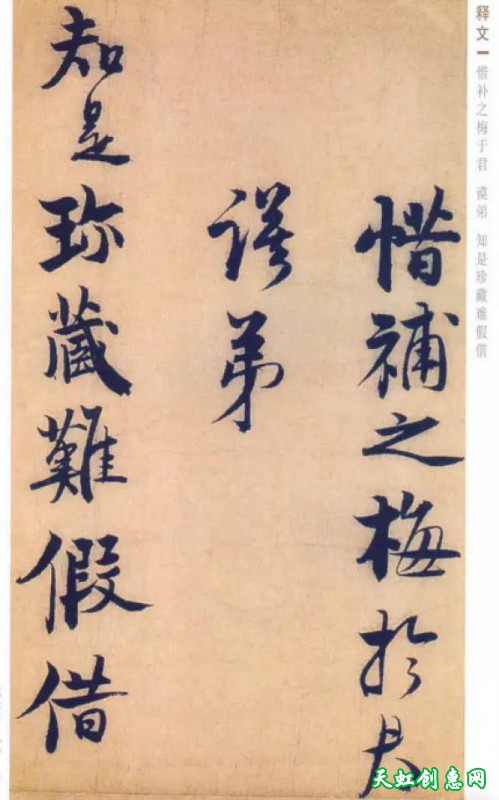 释文 惜补之梅于君 谟弟 知是珍藏难假借
惜補之梅於君
謨弟
知是珍藏難假借
天虹创惠网